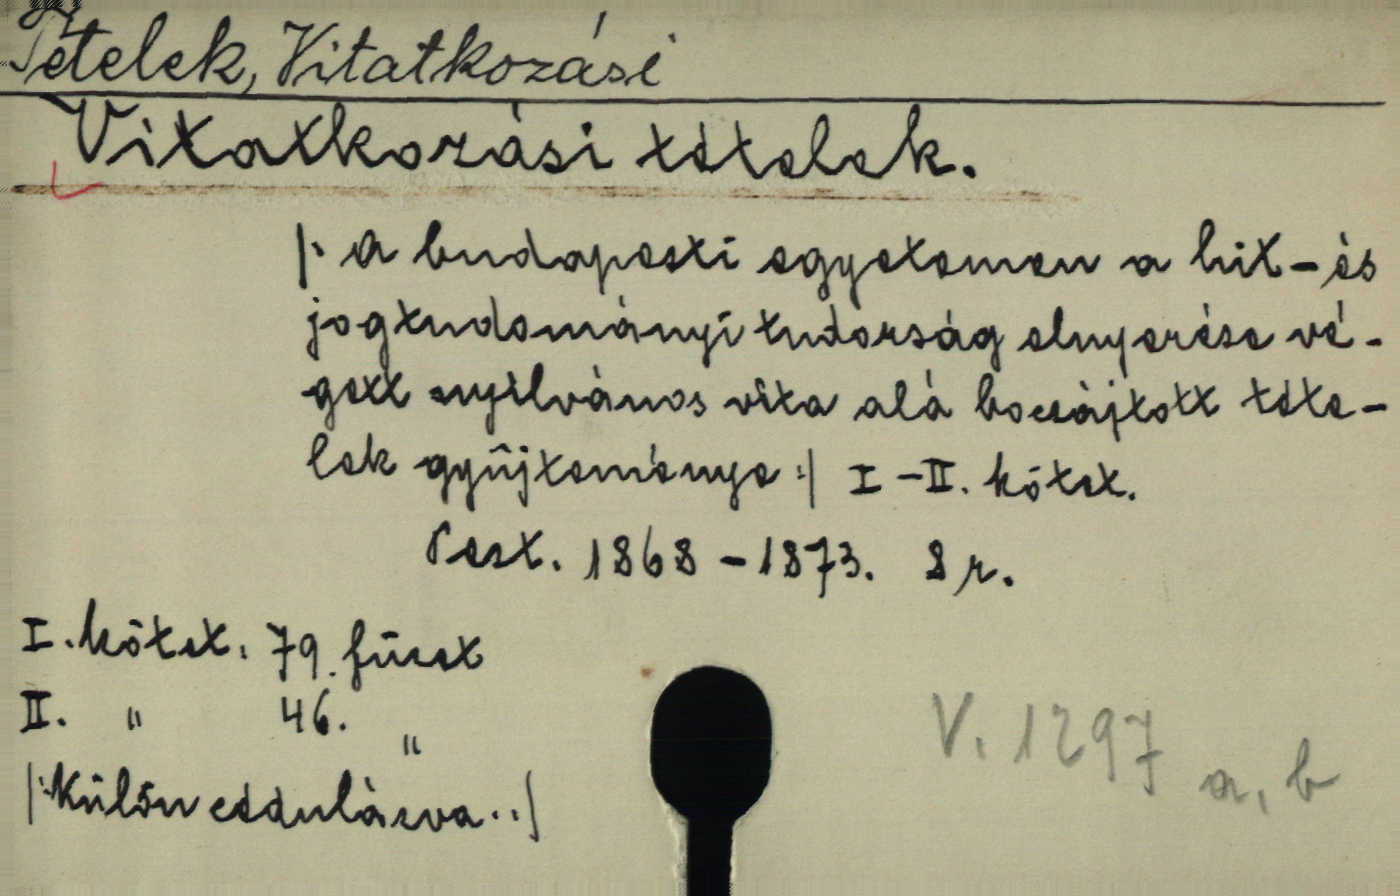 Tételek, Vitatkozási
Vitatkozási tételek.
/: A budapesti egyetemen a hit- és
jogtudományi tudorság elnyerése vé-
gett nyilvános vita alá bocsájtott téte-
lek gyűjteménye :/ I-II. kötet.
Pest. 1868-1873. 8 r.
I. kötet. 79. füzet
II. " 46. "
/: Külön cédulázva. :/
V. 1297 a, b